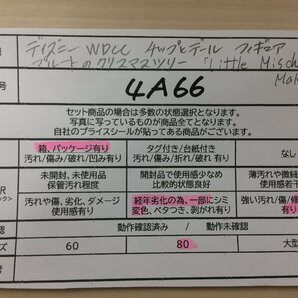 ディズニー WDCC チップとデール フィギュア
プルートのクリスマスツリー 「Little Misch
号
4A66
セット商品の場合は多数の状態選択となります。
写真に写っているものが商品全てとなります。
自社のプライスシールが貼ってある商品がございます。
箱、パッケージ有り
汚れ/傷み/破れ/凹み有り
タグ付き/台紙付き
汚れ/傷み/折れ/破れ 有り
なし
択
未開封、未使用品
保管汚れ程度
開封品で使用感少なめ
比較的状態良好
薄汚れや微細
使用感若干
汚れや傷、劣化、ダメージ
使用感有り
経年劣化の為、一部にシミ
変色、ベタつき、剥がれ有り
強い汚れ/傷/修
有り
認
動作確認済み / 動作未確認
ズ
60
80
大型
者